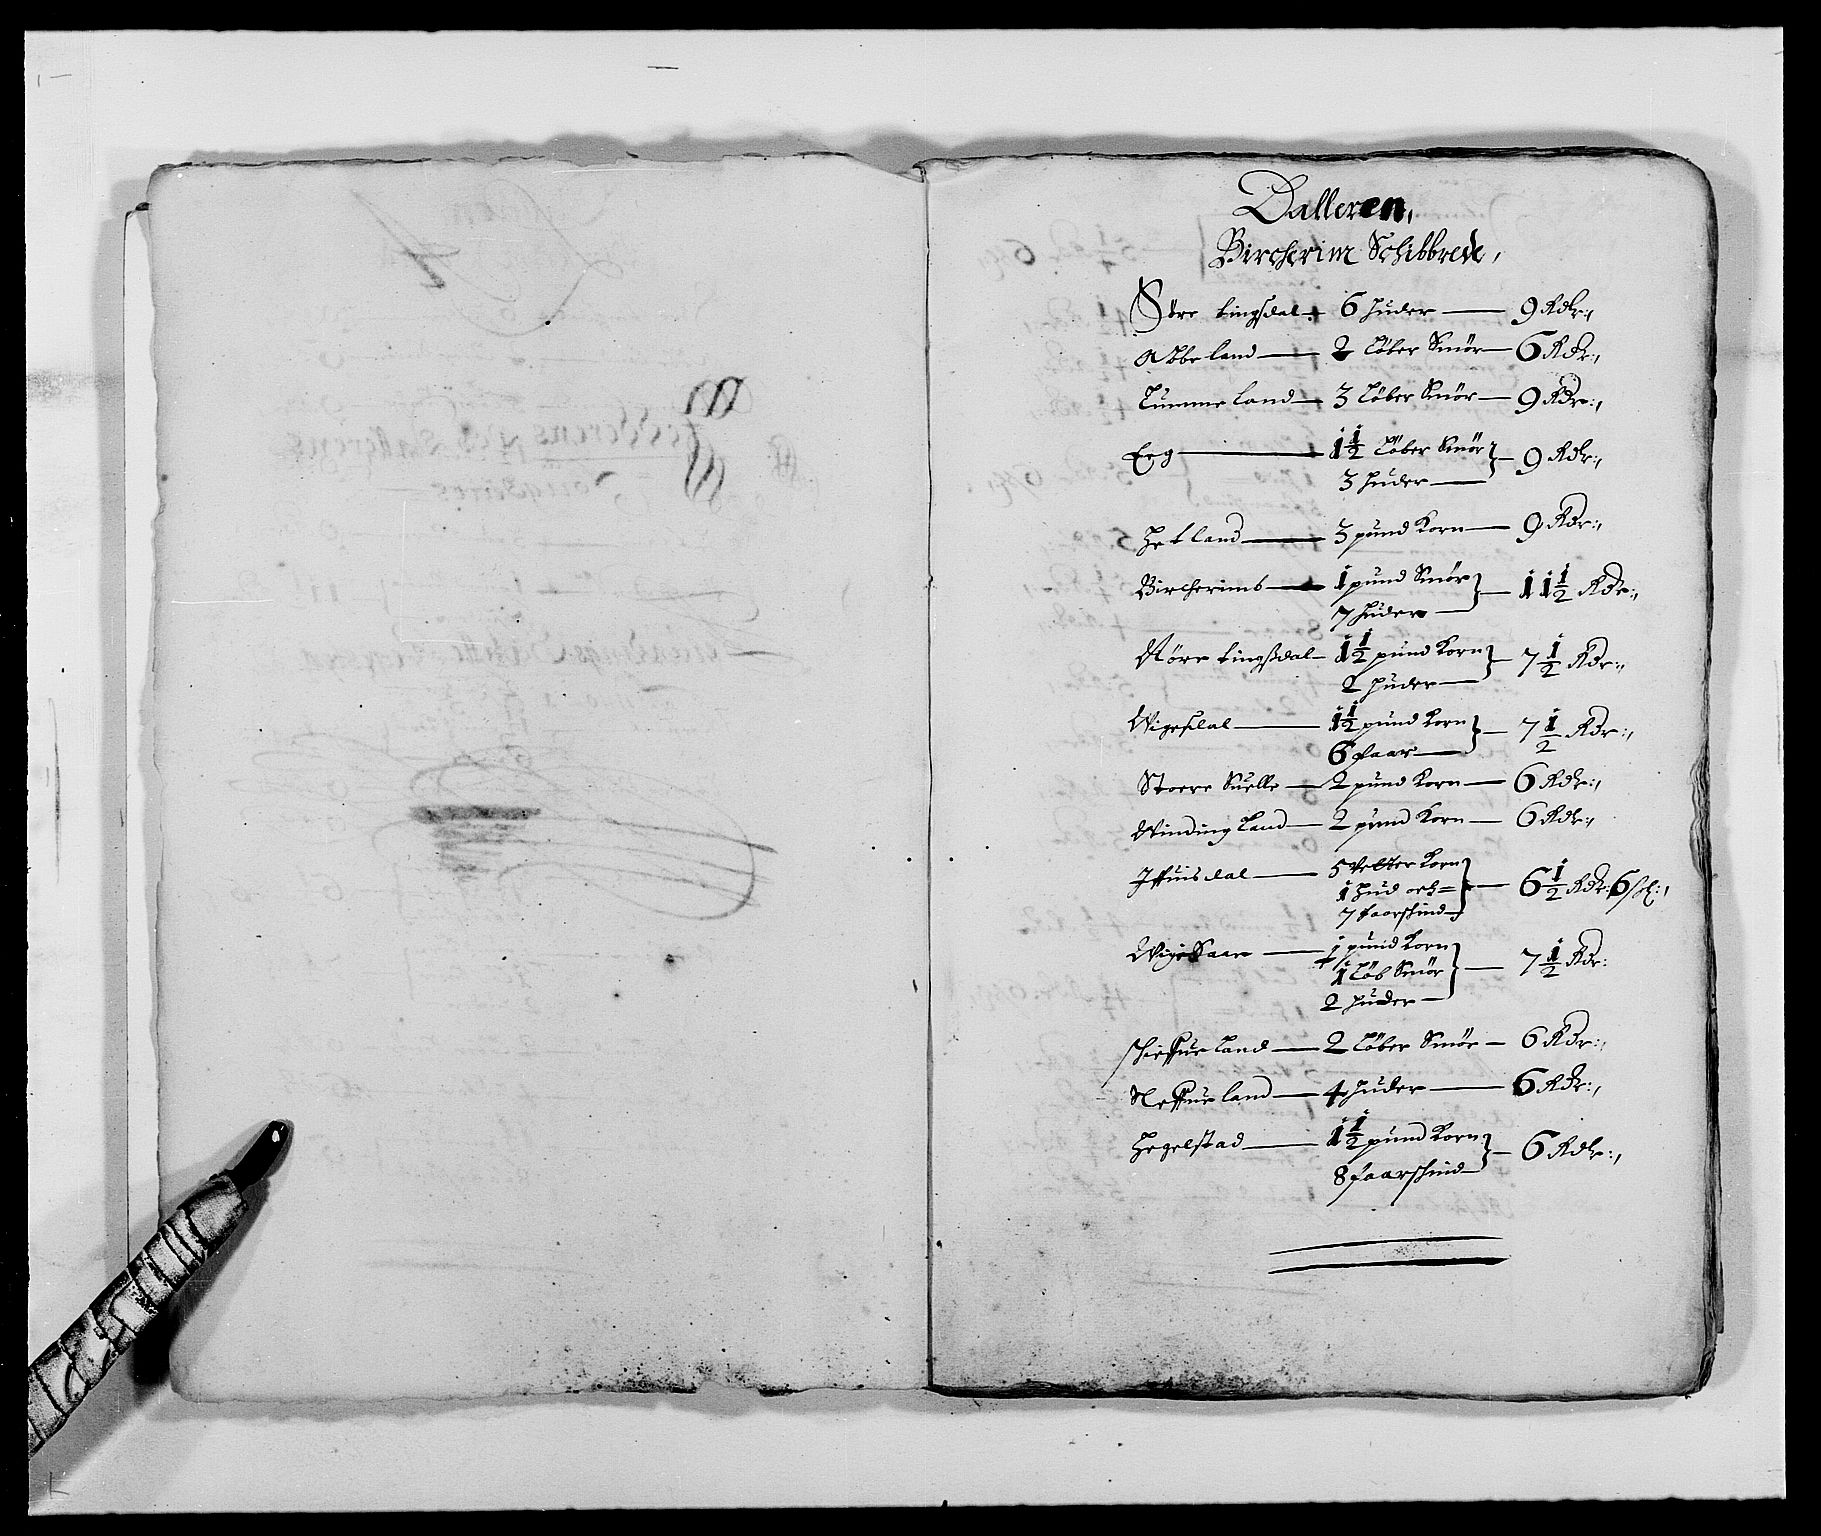 Dalleren,
Bircherim Schibbrede,
Söre tingsdal 6 huder 9 Rdr:,
Abbeland 2 Löber Smör 6 Rdr:,
Lummeland 3 Löber Smör 9 Rdr:,
Eeg 1 1/2 Löber Smör
3 huder 9 Rdr:,
Hetland 3 pund Korn 9 Rdr:,
Bircherimb 1 pund Smör
7 huder 11 1/2 Rdr:,
Nöre tingsdal 1 1/2 pund Korn
2 huder 7 1/2 Rdr:,
Wigesdal 1 1/2 pund Korn
6 faar 7 1/2 Rdr:,
Stoere Suelle 2 pund Korn 6 Rdr:,
Windingland 2 pund Korn 6 Rdr:,
Iffuisdal 5 Vetter Korn
1 hud och
7 faarschind 6 1/2 Rdr: 6 sch:,
1 pund Korn
1 Löb Smör
2 huder 7 1/2 Rdr:
Scheffueland 2 Löber Smör 6 Rdr:,
Neffueland 4 huder 6 Rdr:,
Hegelstad 1 1/2 pund Korn
8 faarschind 6 Rdr:,